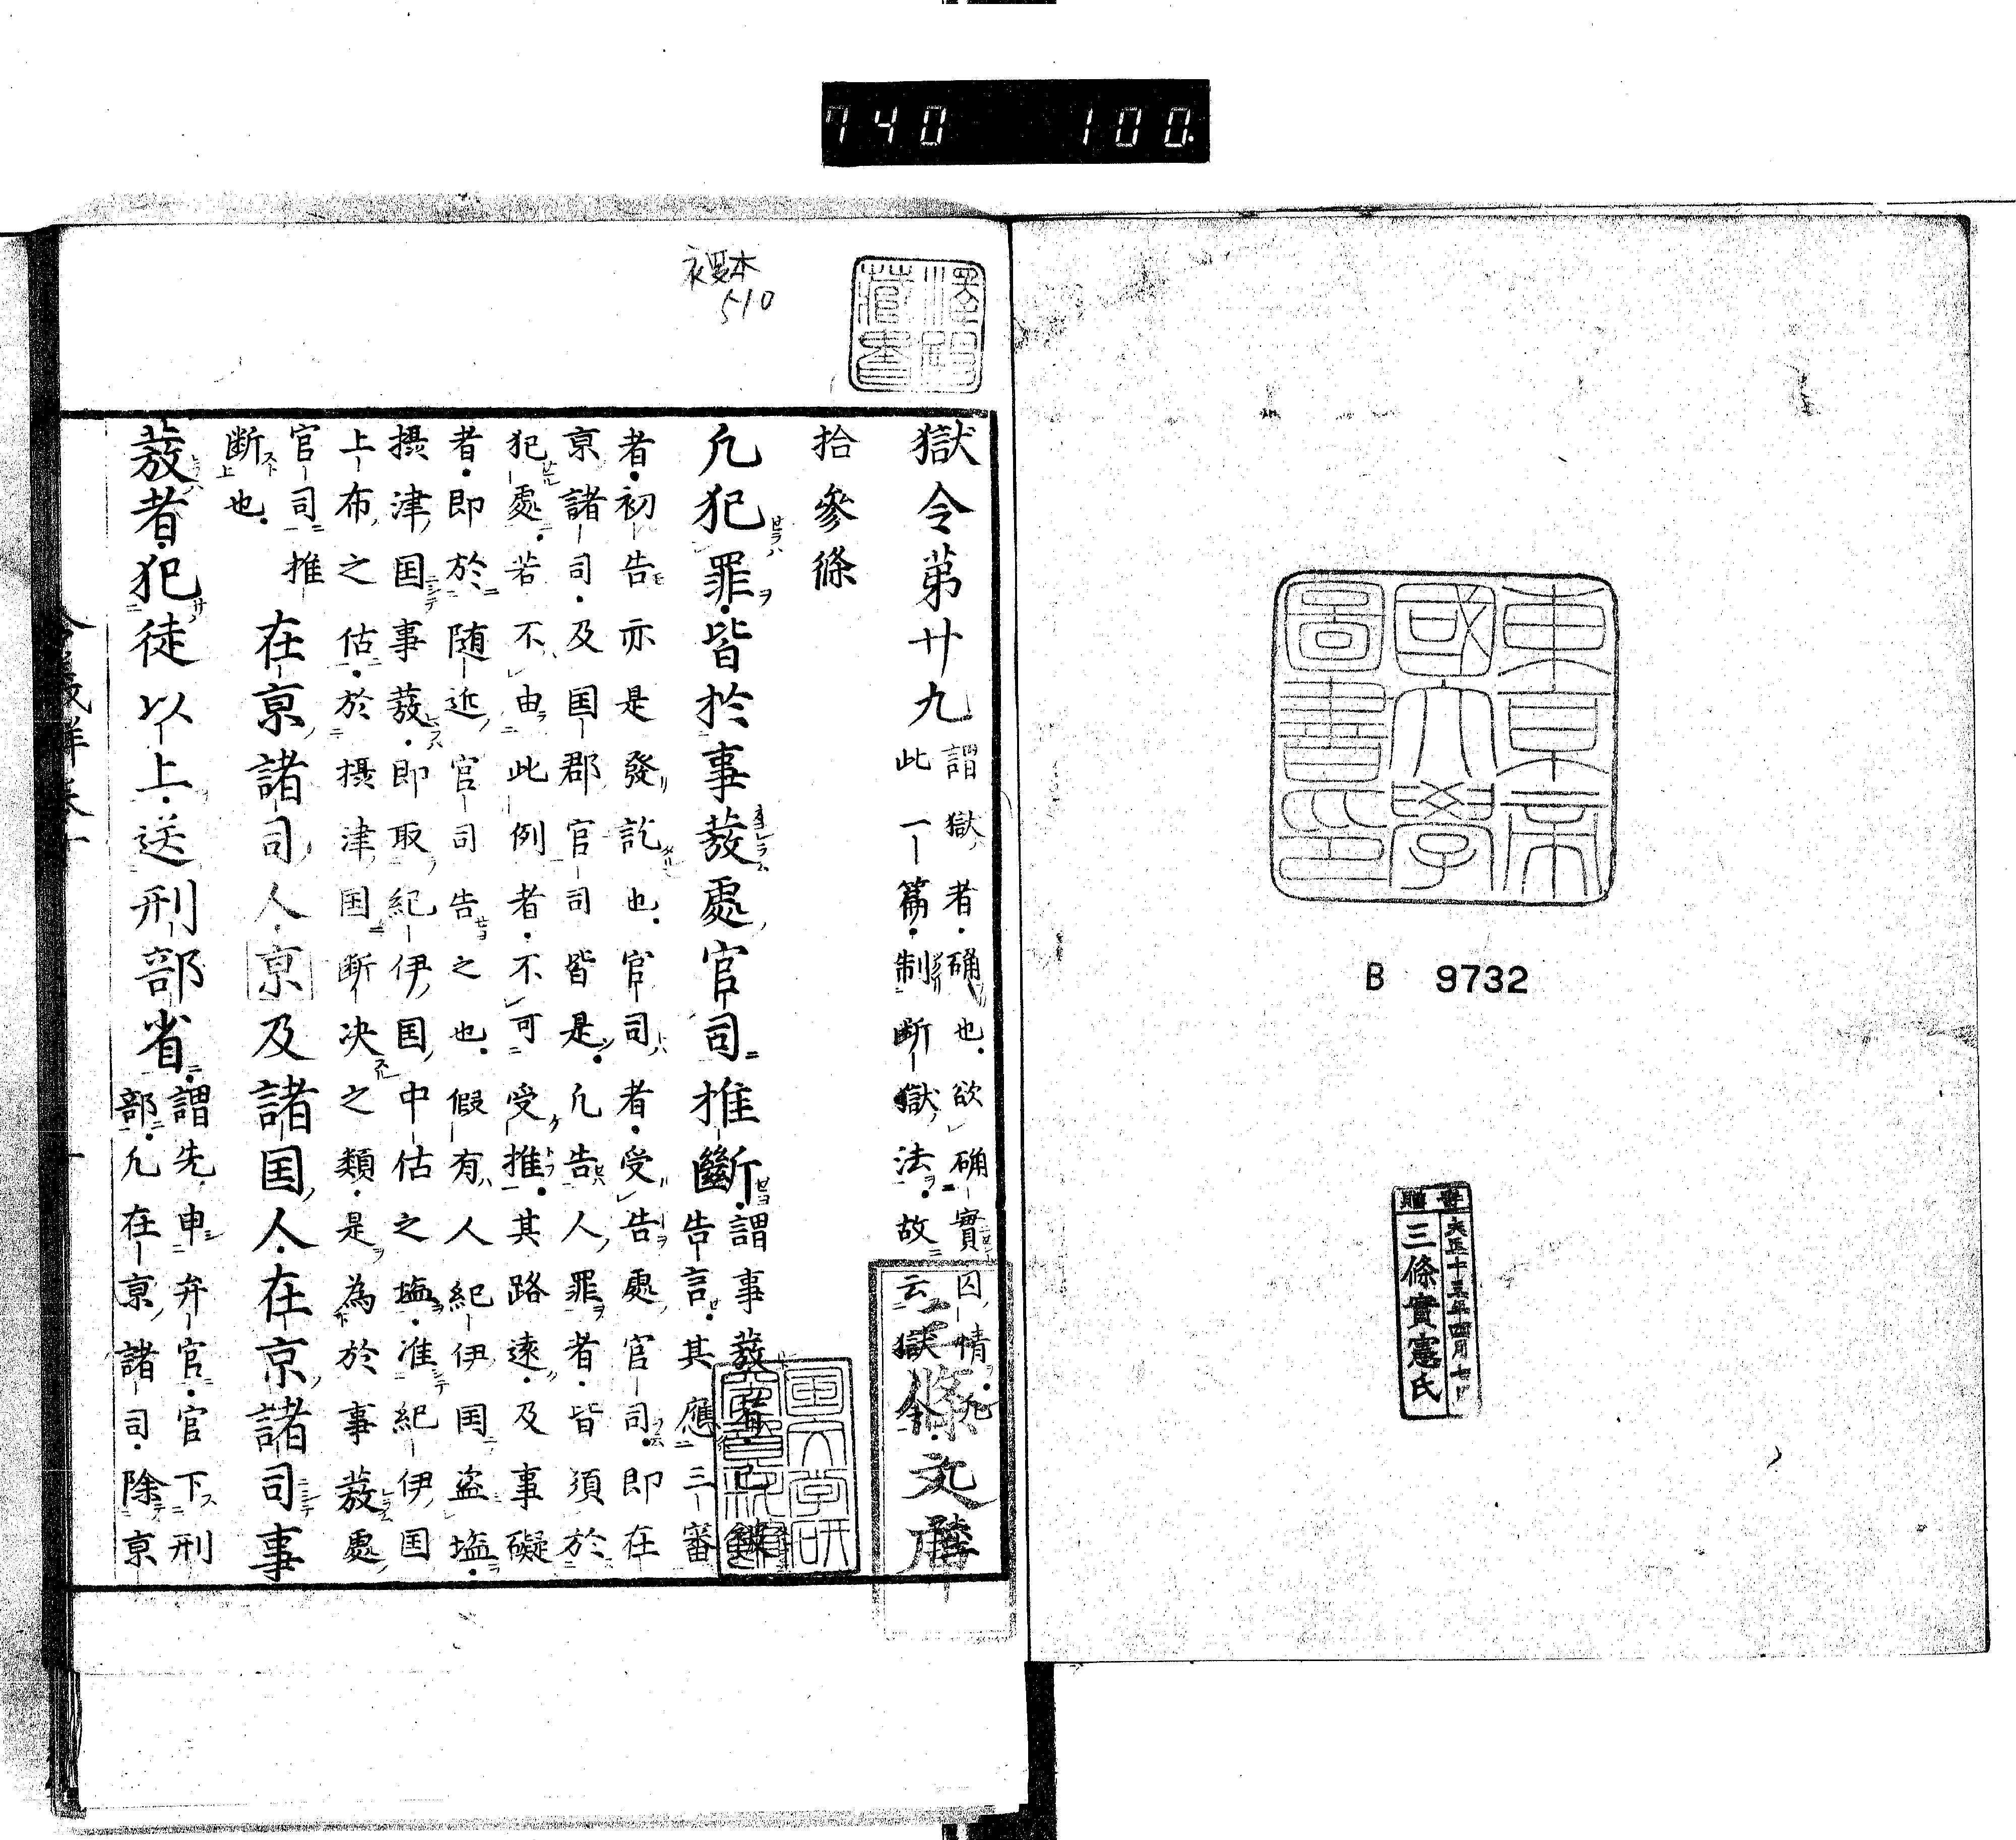 740 100.
東京帝
國大學
圖書印
B 9732
寄贈
大正十三年四月七日
三條實憲氏
複製本
510
獄令第廿九
謂獄者確也欲确實囚情凡
此一篇制断獄法故云獄令
三條文庫
拾參條
凡犯罪皆於事蕟處官司推斷
謂事蕟者已
告言其應三審
者初告亦是發訖也官司者受告處官司即在
京諸司及国郡官司皆是凡告人罪者皆須於
犯處若不由此例者不可受推其路遠及事礙
者即於随近官司告之也假有人紀伊国盗塩
摂津国事蕟即取紀伊国中估之塩准紀伊国
上布之估於摂津国断决之類是為於事蕟處
官司推
断也
在京諸司人京及諸国人在京諸司事
蕟者犯徒以上送刑部省
謂先申弁官官下刑
部凡在京諸司除京